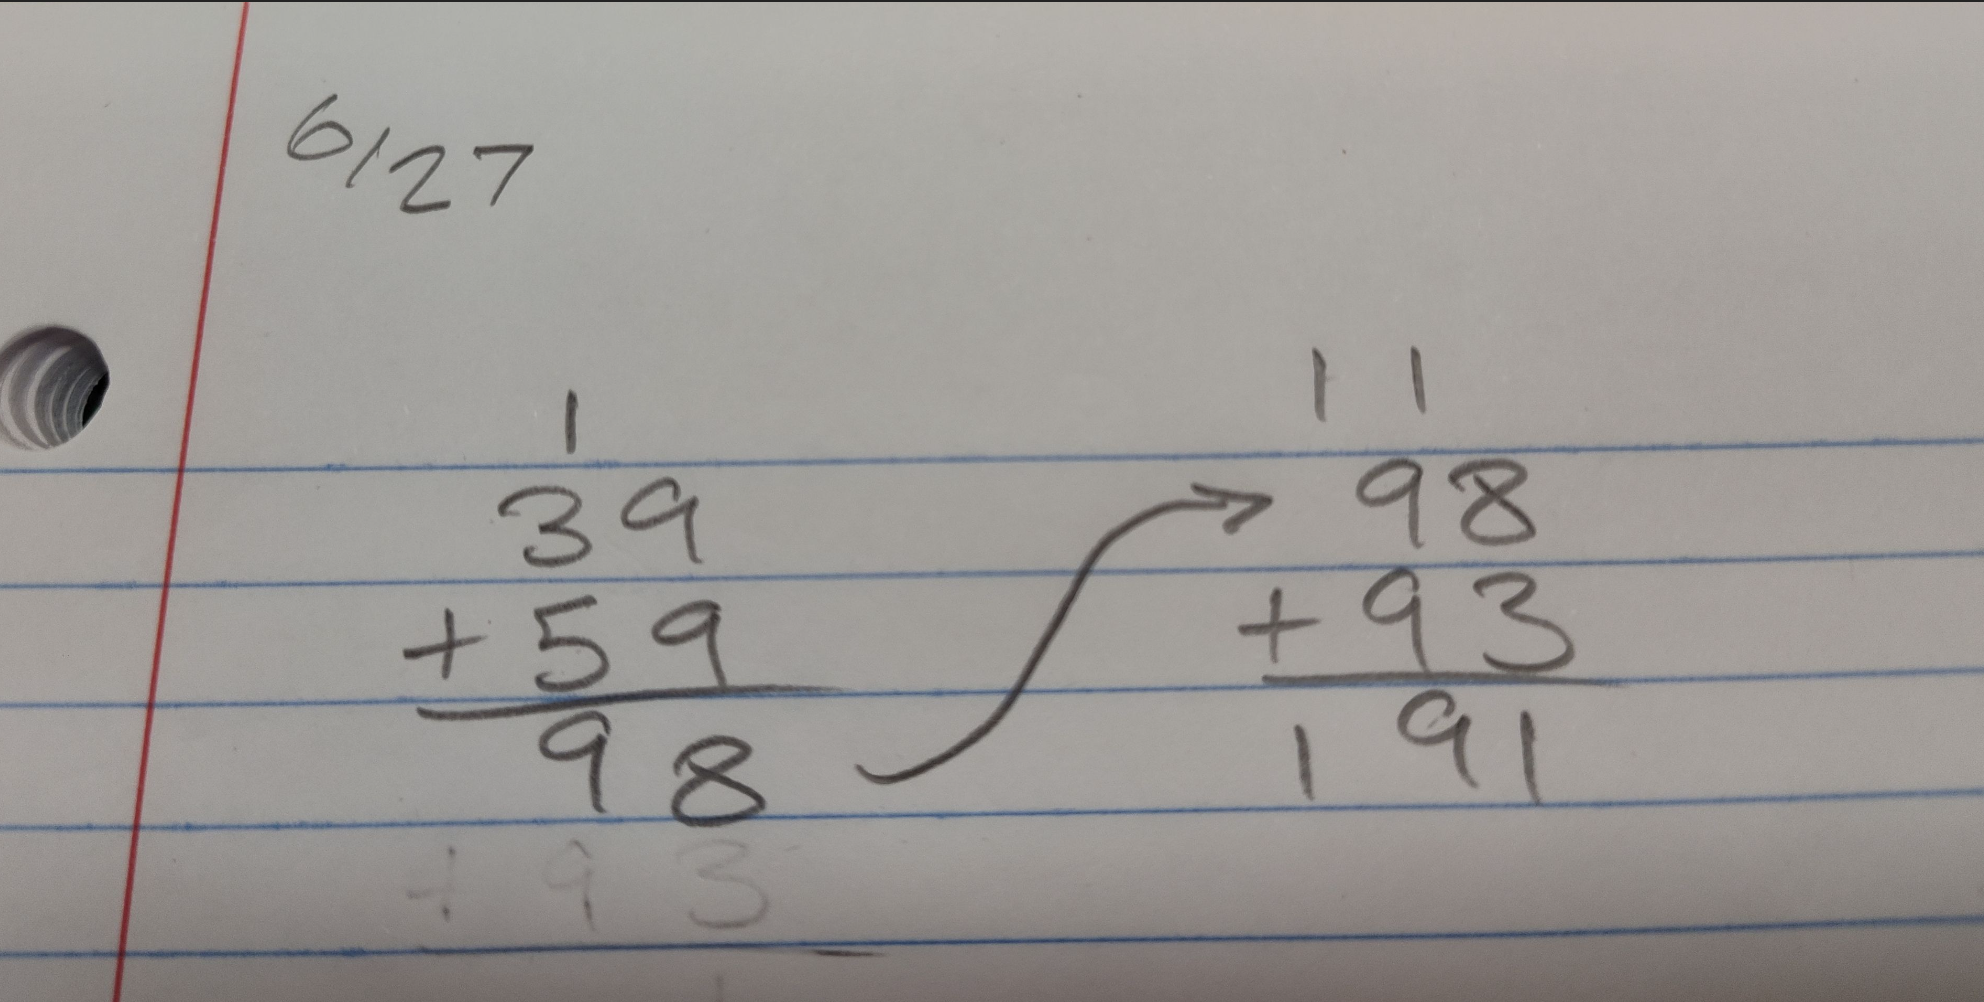 6/27
1
39
+ 59
98
+ 93
1 1
98
+ 93
191